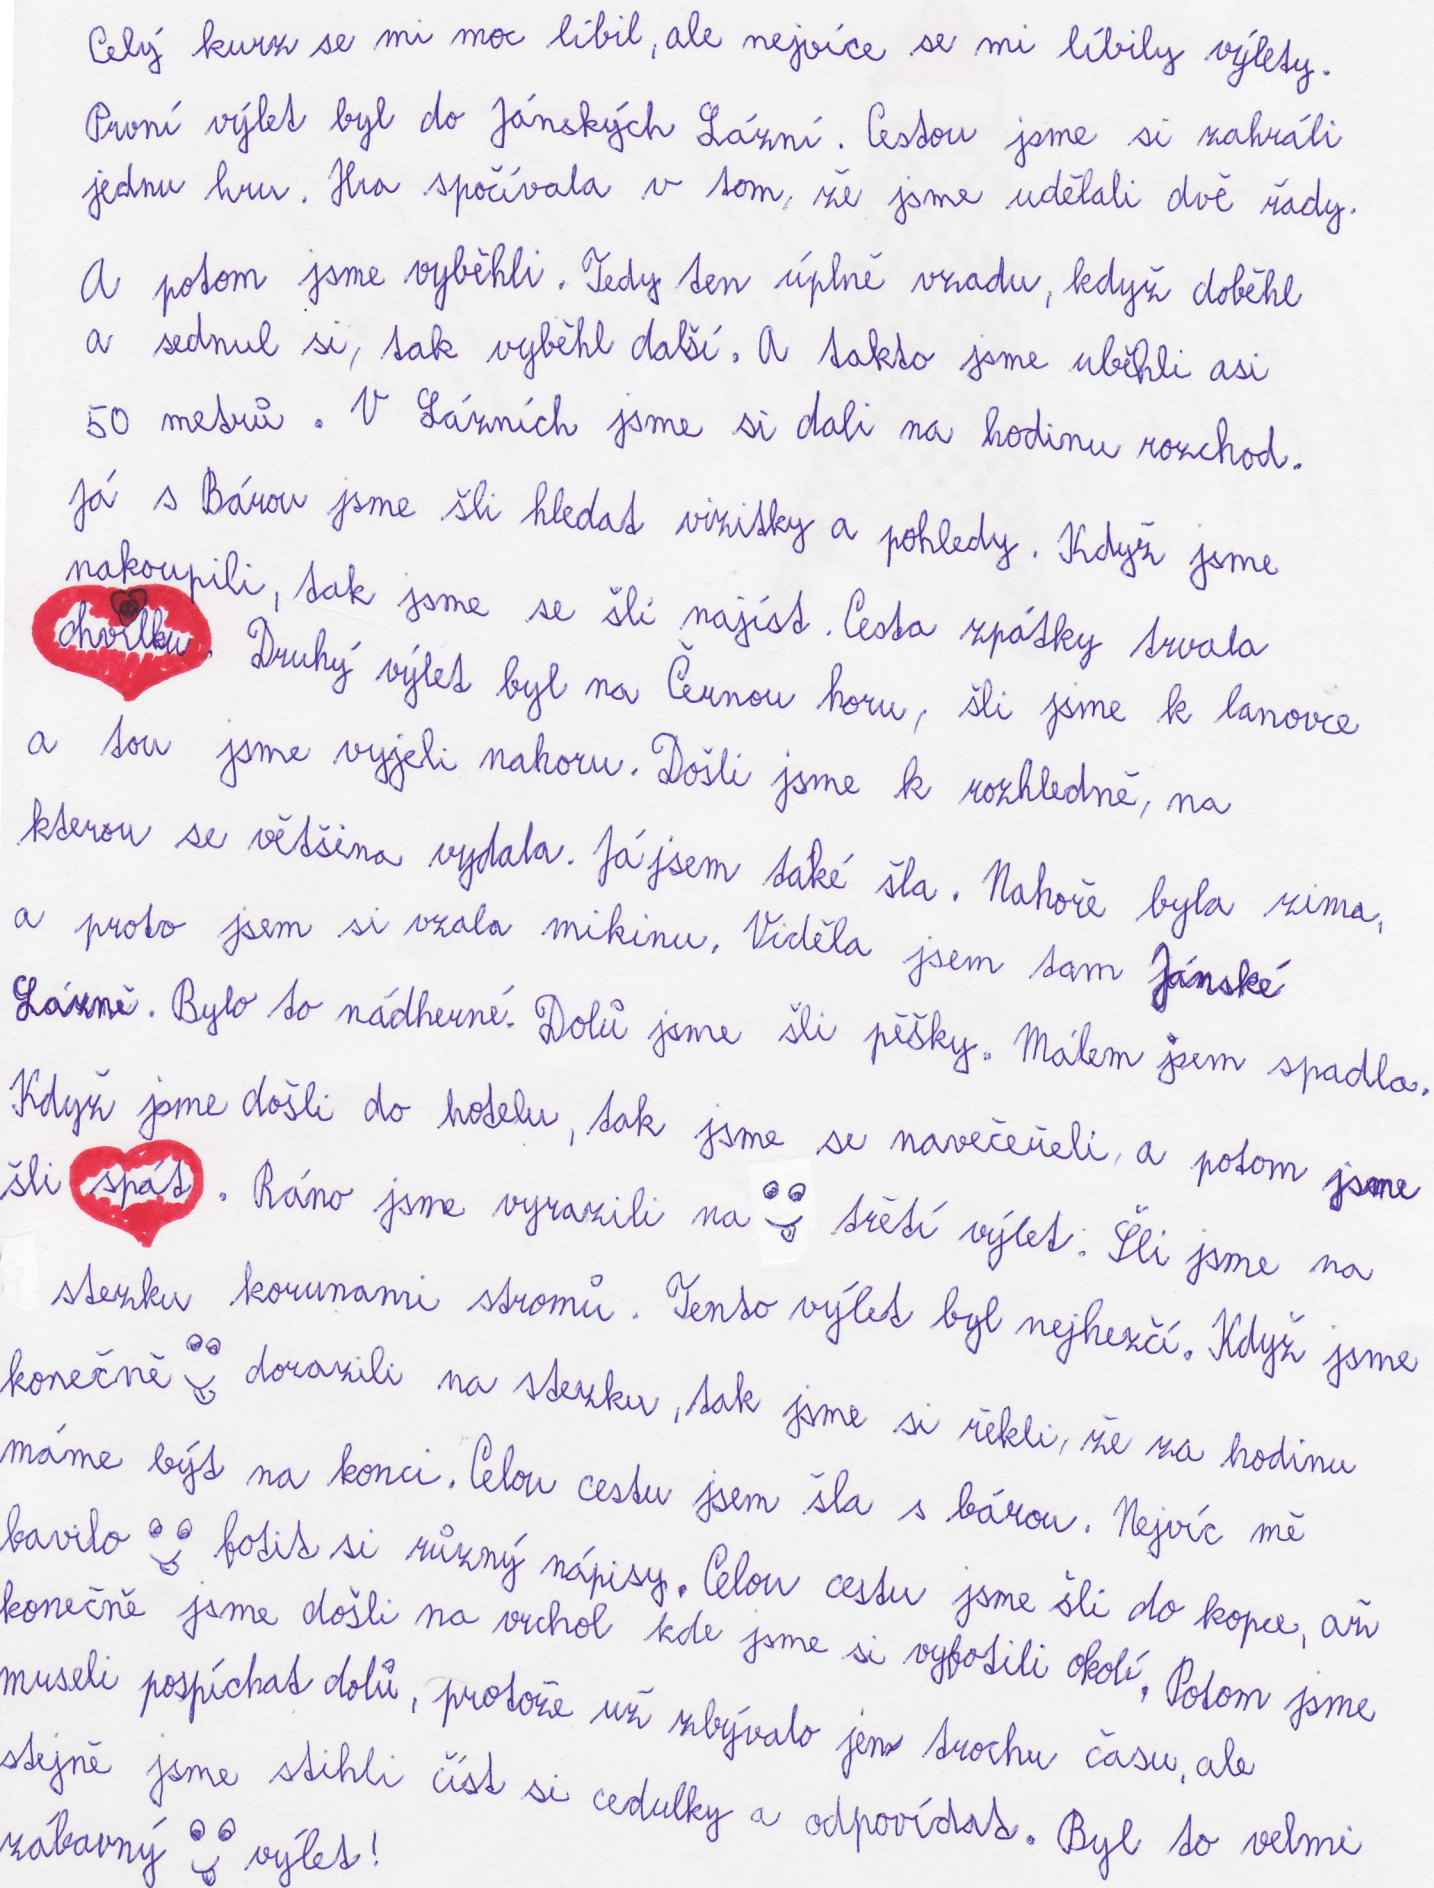 Celý kurz se mi moc líbil, ale nejvíce se mi líbily výlety.
První výlet byl do Jánských Lázní. Cestou jsme si zahráli
jednu hru. Hra spočívala v tom, že jsme udělali dvě řady.
A potom jsme vyběhli. Tedy ten úplně vzadu, když doběhl
a sednul si, tak vyběhl další. A takto jsme uběhli asi
50 metrů. V Lázních jsme si dali na hodinu rozchod.
Já s Bárou jsme šli hledat vizitky a pohledy. Když jsme
nakoupili, tak jsme se šli najíst. Cesta zpátky trvala
chvilku. Druhý výlet byl na Černou horu, šli jsme k lanovce
a tou jsme vyjeli nahoru. Došli jsme k rozhledně, na
kterou se většina vydala. Já jsem také šla. Nahoře byla zima,
a proto jsem si vzala mikinu. Viděla jsem tam Jánské
Lázně. Bylo to nádherné. Dolů jsme šli pěšky. Málem jsem spadla.
Když jsme došli do hotelu, tak jsme se navečeřeli, a potom jsme
šli spát. Ráno jsme vyrazili na třetí výlet. Šli jsme na
stezku korunami stromů. Tento výlet byl nejhezčí. Když jsme
konečně dorazili na stezku, tak jsme si řekli, že za hodinu
máme být na konci. Celou cestu jsem šla s bárou. Nejvíc mě
bavilo fotit si různý nápisy. Celou cestu jsme šli do kopce, až
konečně jsme došli na vrchol kde jsme si vyfotili okolí. Potom jsme
museli pospíchat dolů, protože už zbývalo jen trochu času, ale
stejně jsme stihli číst si cedulky a odpovídat. Byl to velmi
zábavný výlet!